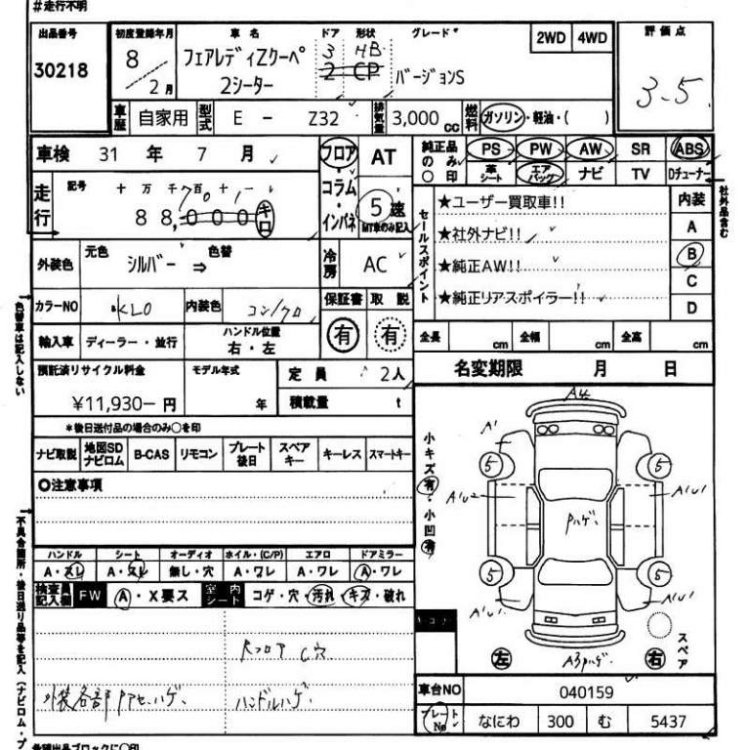 #走行不明
出品番号 初度登録年月 車名 ドア 形状 グレード 2WD 4WD 評価点
30218 8/2月 フェアレディZクーペ 2シーター 3 HB 2 CP バージョンS 3.5
車歴 自家用 型式 E - Z32 排気量 3,000cc 燃料 ガソリン・軽油・( )
車検 31年 7月 フロア AT 純正品のみ○印 PS PW AW SR ABS
革シート エアバッグ ナビ TV Dチューナー
社外品含む
走行 記号 十 万 千 百 十 一 コラム
88,000キロ インパネ 5速 MT車のみ記入
セールスポイント
★ユーザー買取車!! 内装
★社外ナビ!! A
★純正AW!! B
★純正リアスポイラー!! C
D
外装色 元色 シルバー ⇒ 色替 冷房 AC
カラーNO KL0 内装色 コン/クロ 保証書 取説
色替車は記入しない
輸入車 ディーラー・並行 ハンドル位置 右・左 有 有 全長 cm 全幅 cm 全高 cm
預託済リサイクル料金 モデル年式 定員 2人 名変期限 月 日
¥11,930-円 年 積載量 t
*後日送付品の場合のみ○を印
ナビ取説 地図SDナビロム B-CAS リモコン プレート後日 スペアキー キーレス スマートキー
○注意事項
小キズ 有・小凹 有
A4
A'
5 5
A1U2 A1U1
Pハゲ
5 5
A1U1 A1U1
左 A3Pハゲ 右 スペア
不具合箇所・後日送り品等を記入(ナビロム・プ
ハンドル シート オーディオ ホイル・(C/P) エアロ ドアミラー
A・ヌレ A・ヌレ 無し・穴 A・ワレ A・ワレ A・ワレ
検査員記入欄 FW A・X要ス 室内シート コゲ・穴・汚れ・キズ・破れ
Rフロア C穴
外装各部PアセハゲI ハンドルハゲ
車台NO 040159
プレートNo なにわ 300 む 5437
希望出品ブロックに○印